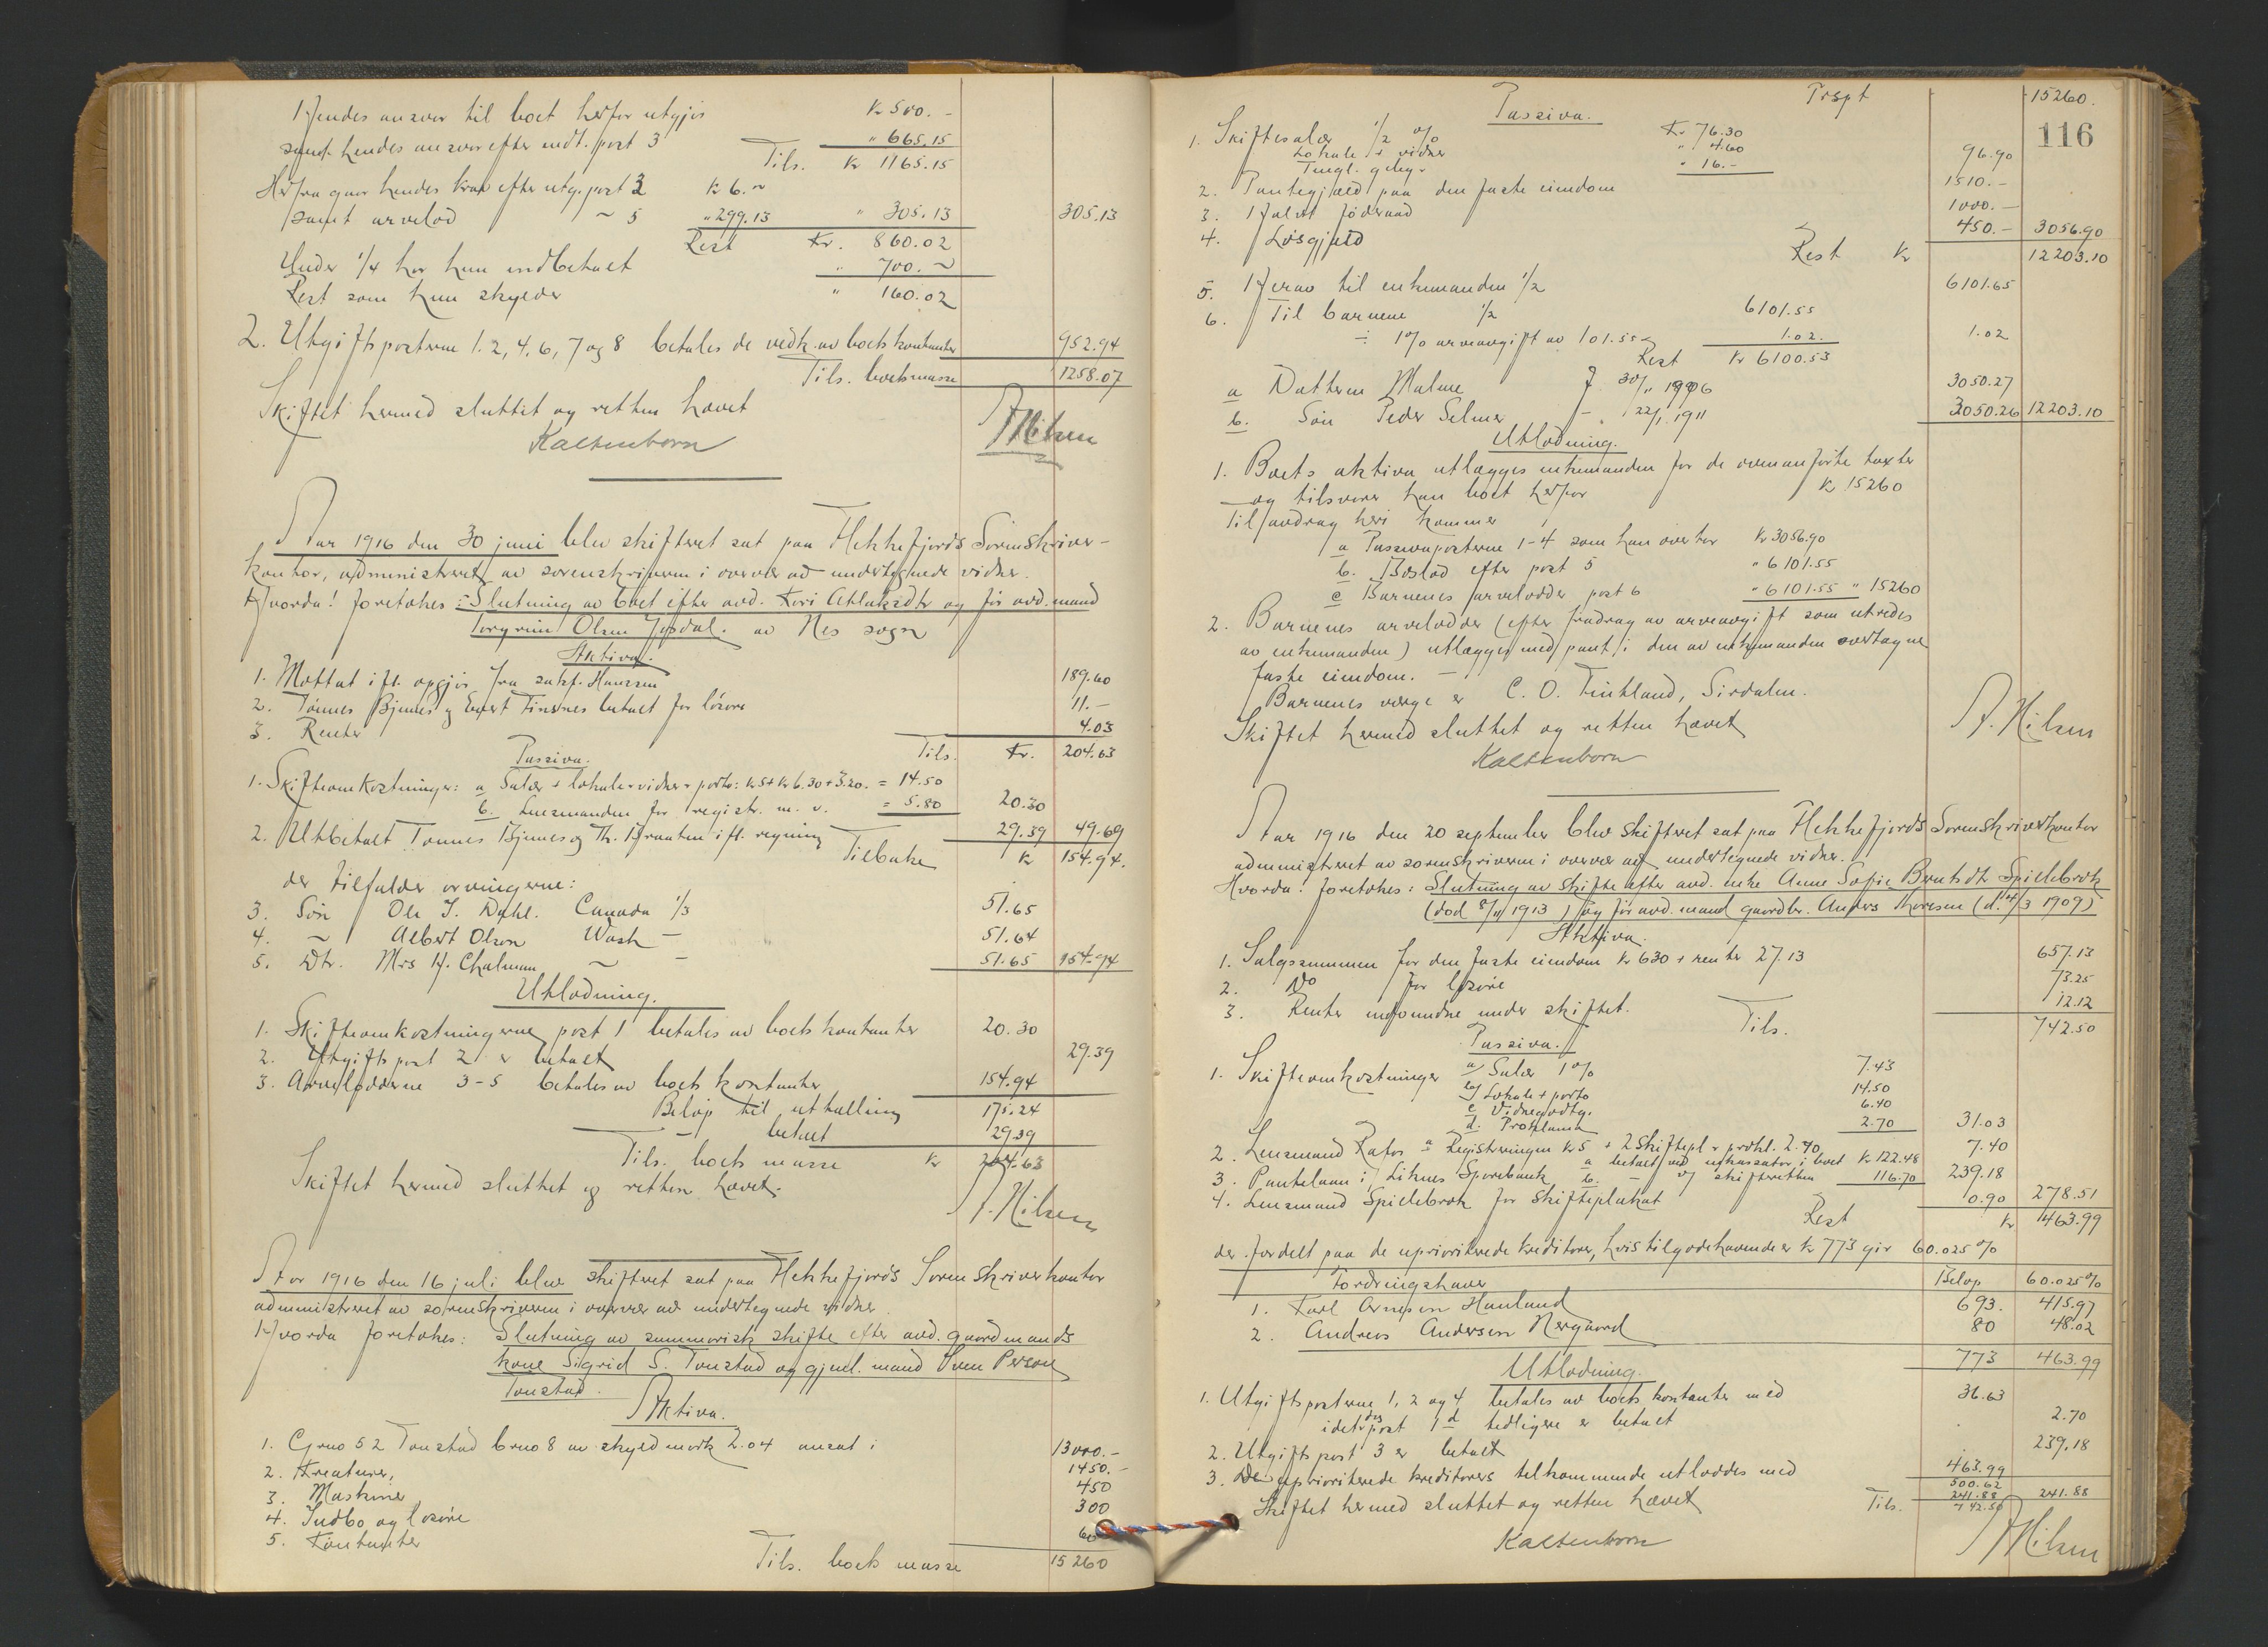 Hendes ansvar til boet herfor utgjør Kr 500. -
samt hendes ansvar efter indt. post 3 " 665.15
Tils. Kr 1165.15
Herfra gaar hendes krav efter utg. post 3 Kr 6. ~
samt arvelod ~ 5 " 299.13 " 305.13 305.13
Rest Kr. 860.02
Under 1/4 har hun indbetalt " 700. ~
Rest som hun skylder " 160.02
2. Utgiftsposterne 1. 2, 4, 6, 7 og 8 betales de vedk. av boets kontanter 952.94
Tils. boets masse 1258.07
Skiftet hermed sluttet og retten hævet
Kaltenborn
A. Nilsen
Aar 1916 den 30 juni blev skifteret sat paa Flekkefjords Sorenskriver-
kontor, administreret av sorenskriveren i overvær av undertegnede vidner.
Hvorda! foretokes: Slutning av boet efter avd. Kori Atlaksdtr og før avd. mand
Torgrim Olsen Josdal. av Nes sogn
Aktiva.
1. Mottat ifl. opgjør fra sakf. Hanssen 189.60
2. Tønnes Bjunes og Enert Finsnes betalt for løsøre 11. -
3. Renter 4.03
Tils. Kr. 204.63
Passiva.
1. Skifteomkostninger: a Salær + lokale + vidner + porto: kr 5 + kr 6.30 + 3.20. = 14.50
b. Lensmanden for registr. m. v. = 5.80 20.30
2. Utbetalt Tønnes Bjunes og Th. Braaten ifl. regning 29.39 49.69
Tilbake Kr 154.94.
der tilfalder arvingerne:
3. Søn Ole T. Dahl. Canada 1/3 51.65
4. ~ Albert Olson Wash - 51.64
5. Dtr. Mrs H. Chalman ~ - 51.65 154.94
Utlodning.
1. Skifteomkostningerne post 1 betales av boets kontanter 20.30
2. Utgiftspost 2 er betalt 29.39
3. Arvelodderne 3-5 betales av boets kontanter 154.94
Beløp til uthælling 175.24
- betalt 29.39
Tils. boets masse Kr 204.63
Skiftet hermed sluttet og retten hævet.
A. Nilsen
Aar 1916 den 16 juli blev skifteret sat paa Flekkefjords Sorenskriverkontor
administreret av sorenskriveren i overvær av undertegnede vidner.
Hvorda foretokes: Slutning av summarisk skifte efter avd. gaardmands
kone Sigrid S. Tonstad og gjenl. mand Sven Person
Tonstad.
Aktiva.
1. Grno 52 Tonstad brno 8 av skyld mark 2.04 ansat i 13000. -
2. Kreaturer, 1450. -
3. Maskiner 450
4. Indbo og løsøre 300
5. Kontanter 60
Tils. boets masse 15260
Trspt 15260.
116
Passiva.
1. Skiftesalær 1/2 % Kr 76.30
Lokale + vidner " 4.60
Tingl. geby. " 16. - 96.90
2. Pantegjæld paa den faste eiendom 1510. -
3. Halvt føderaad 1000. -
4. Løsgjæld 450. - 3056.90
Rest Kr 12203.10
5. Herav til enkemanden 1/2 6101.55
6. Til barnene 1/2 6101.55
÷ 1% arveavgift av 101.55 1.02. 1.02
Rest Kr 6100.53
a Datteren Malene f. 30/11 1906 3050.27
b. Søn Peder Selmer - 22/1 1911 3050.26 12203.10
Utlodning.
1. Boets aktiva utlægges enkemanden for de ovenanførte takster
og tilsvarer han boet herfor Kr 15260
Til fradrag heri kommer
a Passivaposterne 1-4 som han overtar Kr 3056.90
b. Boslod efter post 5 " 6101.55
c Barnenes arvelodder post 6 " 6101.55 " 15260
2. Barnenes arvelodder (efter fradrag av arveavgift som utredes
av enkemanden) utlægges med pant i den av enkemanden overtagne
faste eiendom. -
Barnenes verge er C. O. Fintland, Sirdalen.
Skiftet hermed sluttet og retten hævet
A. Nilsen
Kaltenborn
Aar 1916 den 20 september blev skifteret sat paa Flekkefjords Sorenskriverkontor
administreret av sorenskriveren i overvær av undertegnede vidner.
Hvorda! foretokes: Slutning av skifte efter avd. enke Anne Sofie Berntsdtr Spillebrok
(død 8/11 1913) og før avd. mand gaardbr. Anders Thoresen (d. 14/3 1909)
Aktiva.
1. Salgssummen for den faste eiendom kr 630 + renter 27.13 657.13
2. Do for løsøre 73.25
3. Renter indvundne under skiftet. 12.12
Tils. 742.50
Passiva.
1. Skifteomkostninger a) Salær 1% 7.43
b) Lokale + porto 14.50
c Vidnegodtg. 6.40
d. Proklama 2.70 31.03
2. Lensmand Rafos a Registreringen kr 5 + 2 skiftepl + prokl. 2.40 7.40
3. Pantelaan i Liknes Sparebank a betalt ved inkassator i boet Kr 122.48
b. - av skifteretten 116.70 239.18
4. Lensmand Spillebrok for skifteplakat 0.90 278.51
Rest Kr 463.99
der fordelt paa de uprioriterede kreditorer, hvis tilgodehavende er kr 773 gir 60.025 %
Fordringshaver Beløp 60.025 %
1. Karl Arnesen Hauland 693. 415.97
2. Andreas Andersen Nergaard 80 48.02
773 463.99
Utlodning.
1. Utgiftsposterne 1, 2 og 4 betales av boets kontanter med 36.63
idet dog post 1 d tidligere er betalt 2.70
2. Utgiftspost 3 er betalt 239.18
3. De uprioriterede kreditorers tilkommende utloddes med 463.99
500.62
241.88 241.88
Skiftet hermed sluttet og retten hævet Tils. 742.50
Kaltenborn
A. Nilsen